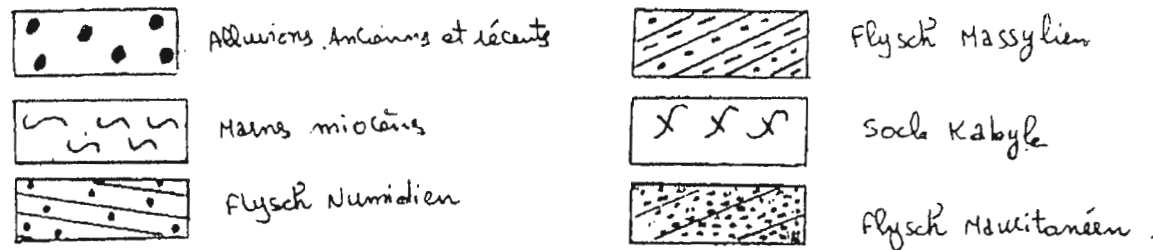 Alluvions Anciennes et récents
Marnes miocènes
Flysch Numidien
Flysch Massylien
Socle Kabyle
Flysch Mauritanéen.